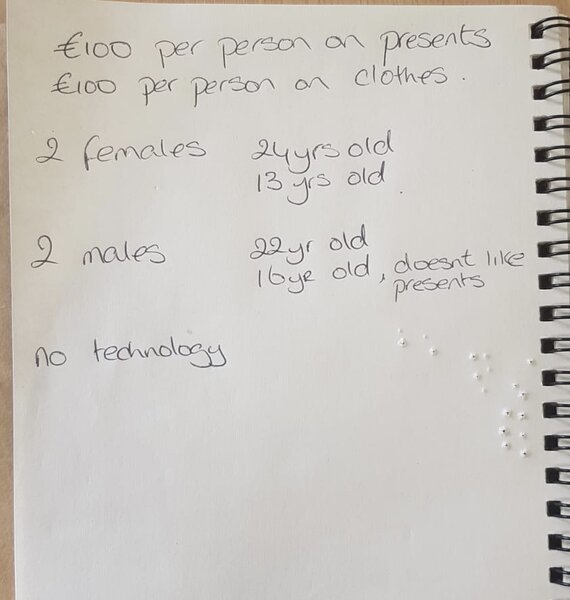 €100 per person on presents
€100 per person on clothes.
2 females 24yrs old
13 yrs old.
2 males 22yr old
16ye old, doesnt like
presents
no technology